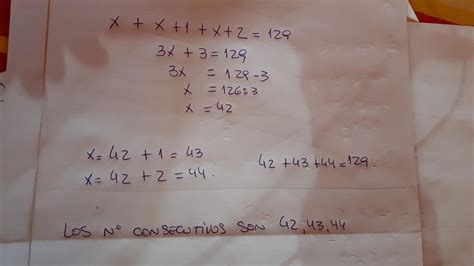 x + x+1 + x+2 = 129
3x + 3 = 129
3x = 129-3
x = 126:3
x = 42
x = 42 + 1 = 43
x = 42 + 2 = 44.
42 + 43 + 44 = 129.
LOS Nº CONSECUTIVOS SON 42, 43, 44